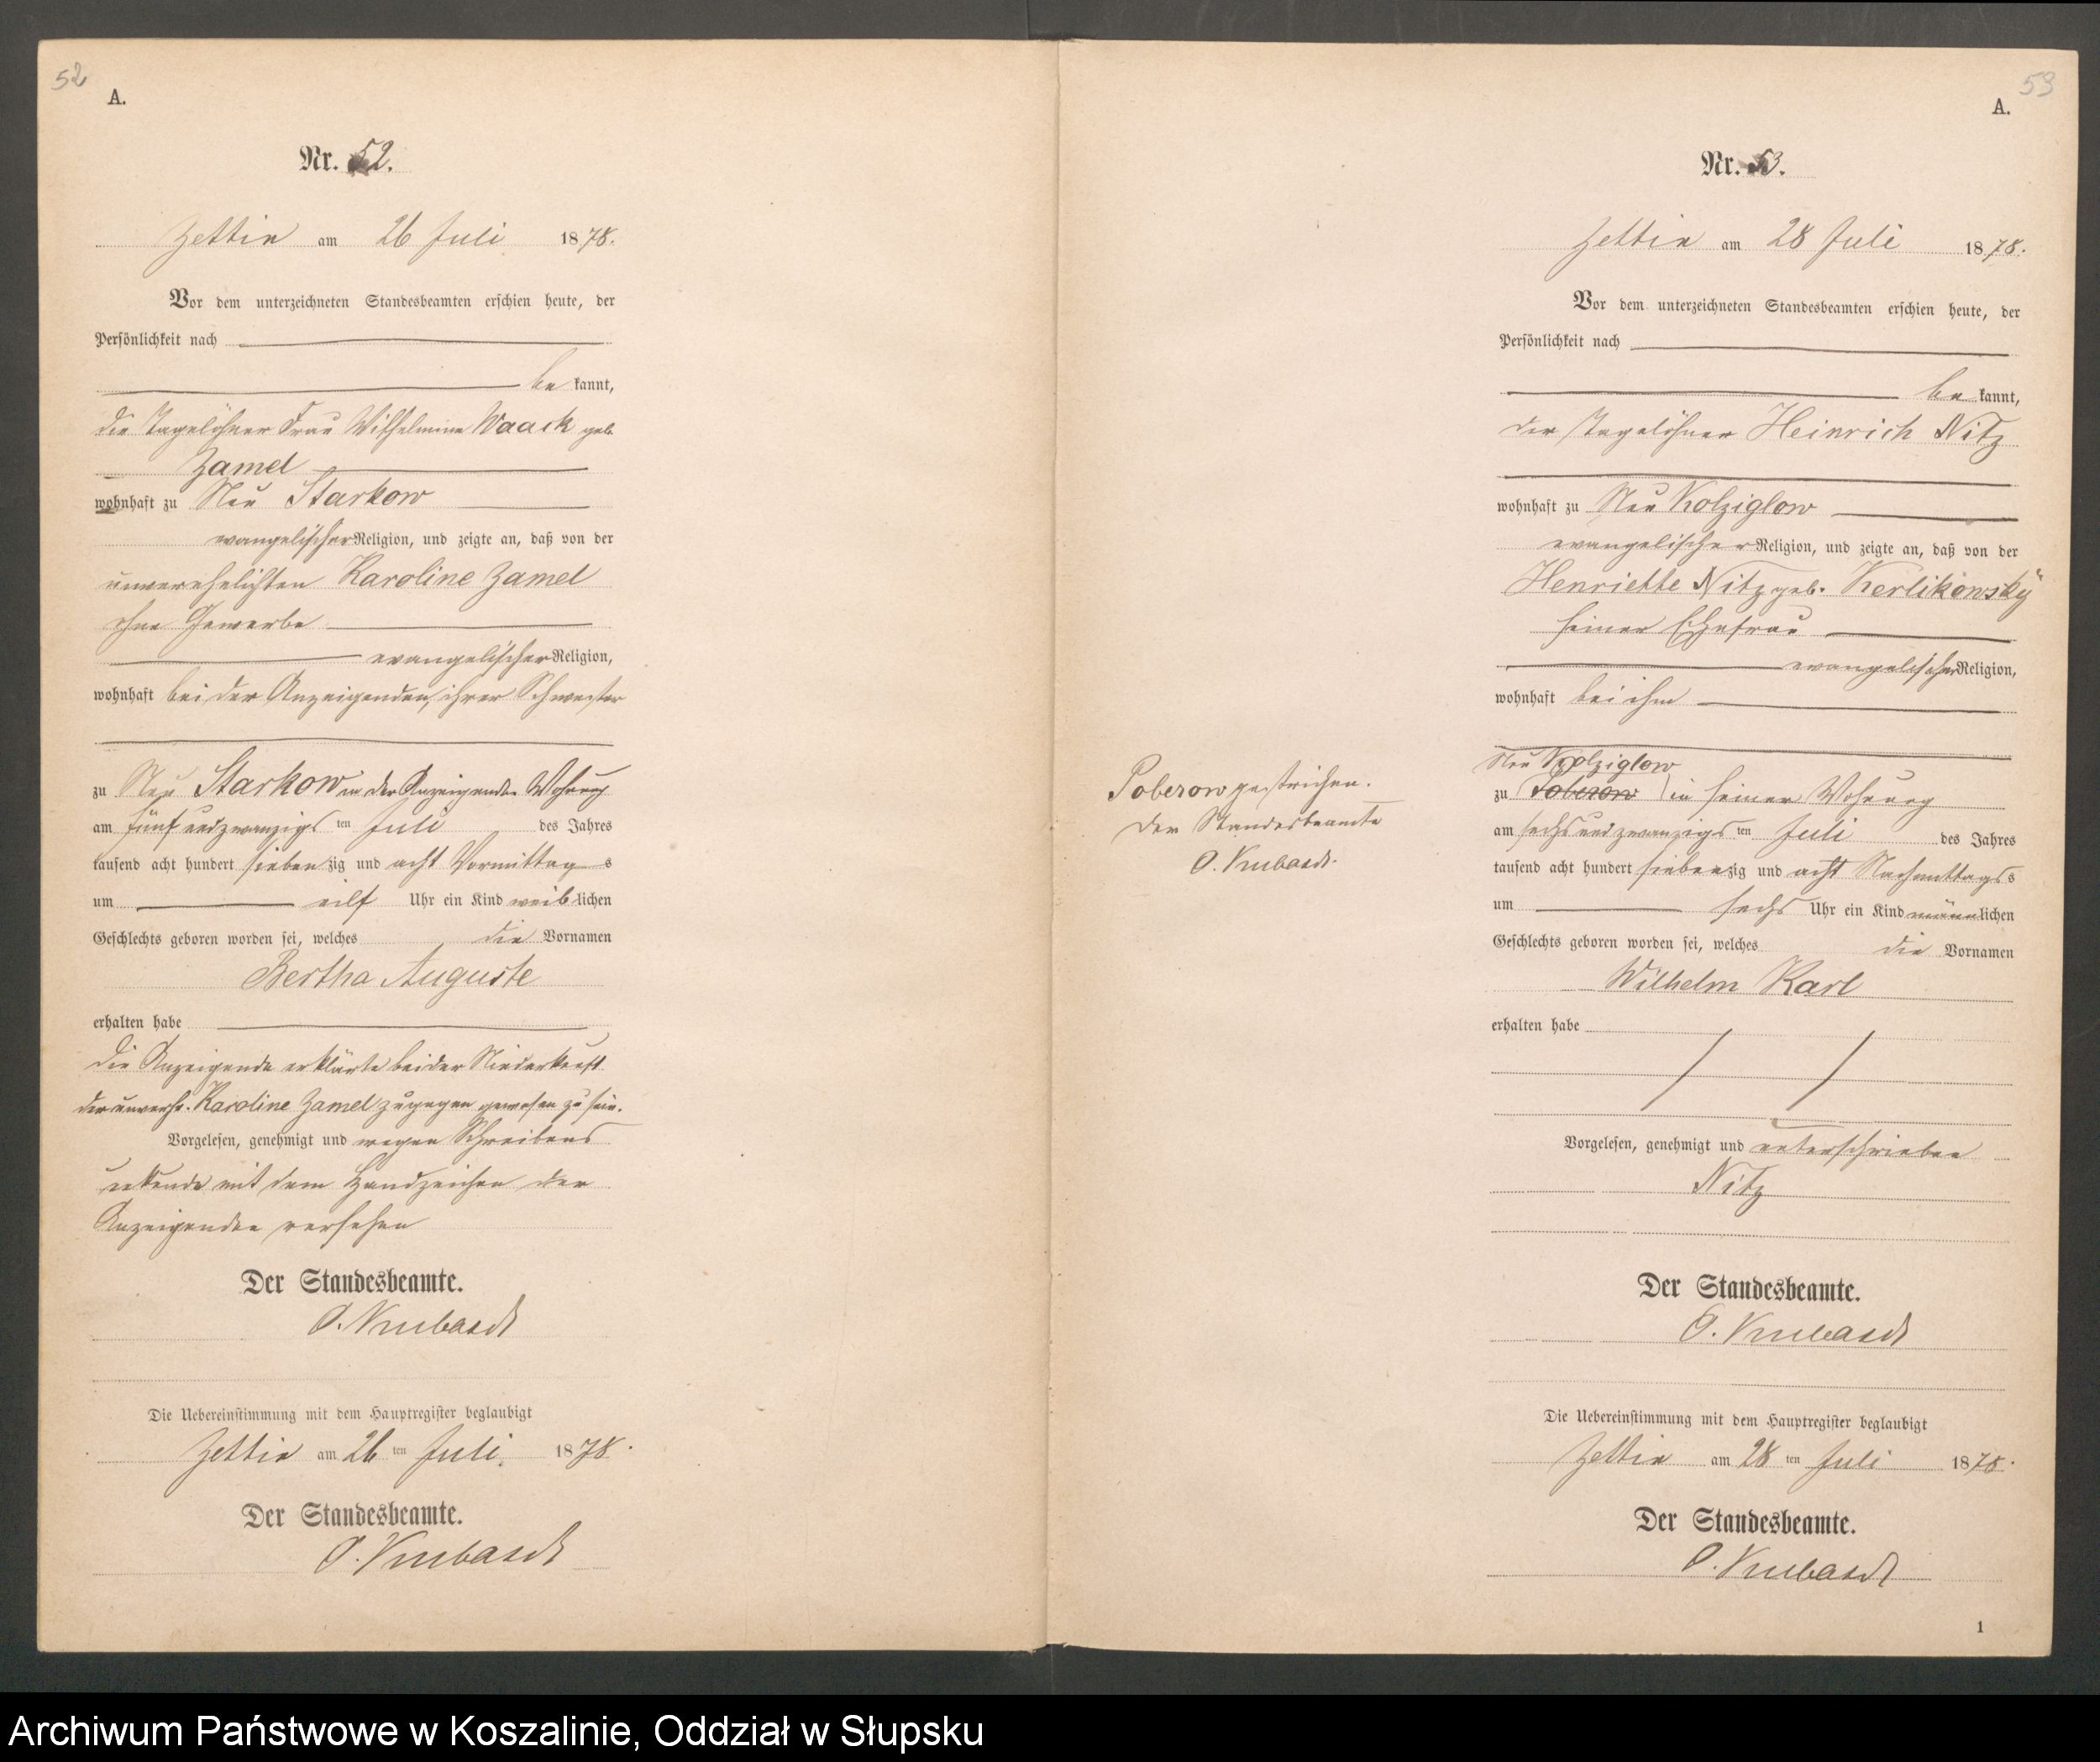 52
A.
Nr. 52.
Zettin am 26 Juli 1878.
Vor dem unterzeichneten Standesbeamten erschien heute, der
Persönlichkeit nach
be kannt,
die Tagelöhner Frau Wilhelmine Waack geb.
Zamel
wohnhaft zu Neu Starkow
evangelischer Religion, und zeigte an, daß von der
unverehelichten Karoline Zamel
ohne Gewerbe
evangelischer Religion,
wohnhaft bei der Anzeigenden, ihrer Schwester
zu Neu Starkow in der Anzeigenden Wohnung
am fünf und zwanzigs ten Juli des Jahres
tausend acht hundert sieben zig und acht Vormittag s
um eilf Uhr ein Kind weib lichen
Geschlechts geboren worden sei, welches die Vornamen
Bertha Auguste
erhalten habe
Die Anzeigende erklärte bei der Niederkunft
der unvereh. Karoline Zamel zugegen gewesen zu sein.
Vorgelesen, genehmigt und wegen Schreibens
unkunde mit dem Handzeichen der
Anzeigenden versehen
Der Standesbeamte.
Die Uebereinstimmung mit dem Hauptregister beglaubigt
Zettin am 26 ten Juli 1878.
Der Standesbeamte.
53
A.
Nr. 53.
Zettin am 28 Juli 1878.
Vor dem unterzeichneten Standesbeamten erschien heute, der
Persönlichkeit nach
be kannt,
der Tagelöhner Heinrich Nitz
wohnhaft zu Neu Kolziglow
evangelischer Religion, und zeigte an, daß von der
Henriette Nitz geb. Kerlikowsky
seiner Ehefrau
evangelischer Religion,
wohnhaft bei ihm
Neu Kolziglow
zu Poberow in seiner Wohnung
am sechs und zwanzigs ten Juli des Jahres
tausend acht hundert sieben zig und acht Nachmittags s
um sechs Uhr ein Kind männ lichen
Geschlechts geboren worden sei, welches die Vornamen
Wilhelm Karl
erhalten habe
Poberow gestrichen.
Der Standesbeamte
Vorgelesen, genehmigt und unterschrieben
Nitz
Der Standesbeamte.
Die Uebereinstimmung mit dem Hauptregister beglaubigt
Zettin am 28 ten Juli 1878.
Der Standesbeamte.
1
Archiwum Państwowe w Koszalinie, Oddział w Słupsku